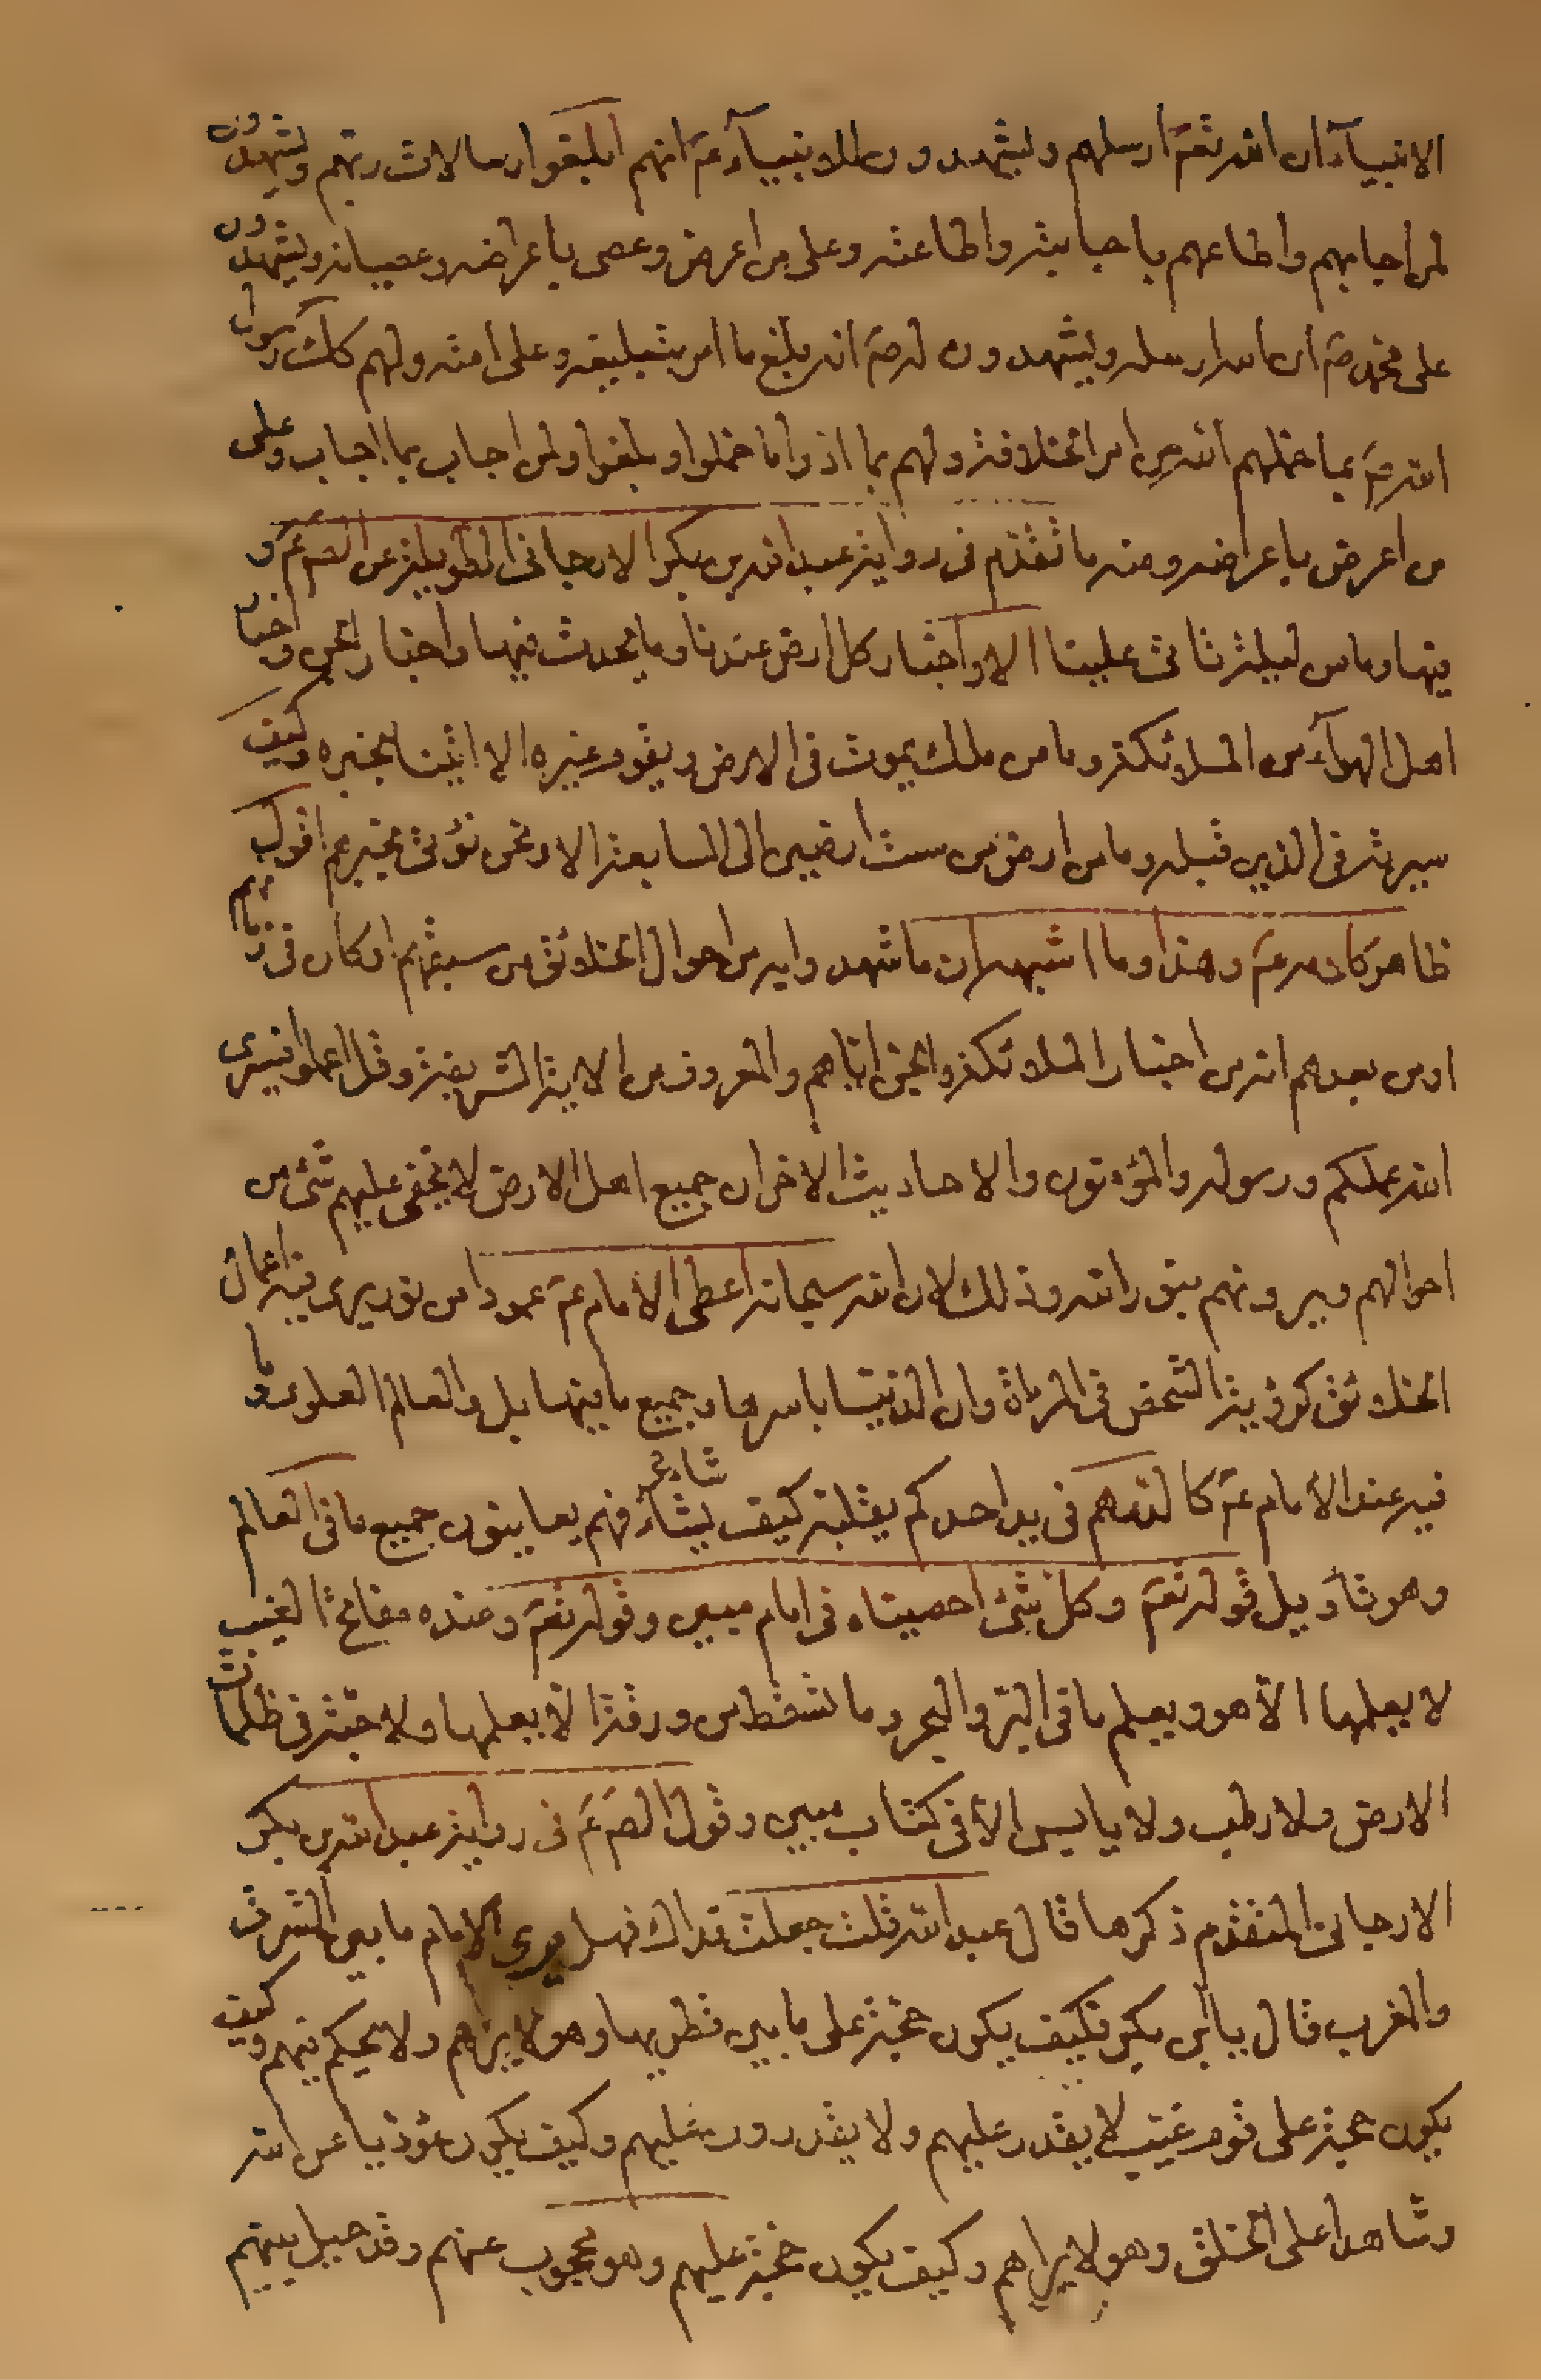 الانبيآء ان الله تعٓ ارسلهم ويشهدون للانبيآء عٓ انهم ابلغوا رسالات ربهم ويشهدون
لمن اجابهم واطاعهم باجابته واطاعته وعلى من اعرض وعصى باعراضه وعصيانه ويشهدون
على محمد صٓ ان الله ارسله ويشهدون له صٓ انه بلغ ما امر بتبليغه وعلى امته ولهم كك رسول
الله صٓ بما حملهم الله من امر الخلافة ولهم بما اذوا ما حملوا وبلغوا ولمن اجاب بما اجاب وعلى
من اعرض باعراضه ومنه ما تقدم فى رواية عبد الله بن بكر الارجانى الطويلة عن الصٓ عٓ و
فيها وما من ليلة تاتى علينا الا واخبار كل ارض عندنا وما يحدث فيها واخبار الجن واخبار
اهل الهوآء من الملائكة وما من ملك يموت فى الارض ويقوم غيره الا اتينا بخبره وكيف
سيرته فى الذين قبله وما من ارض من ست ارضين الى السابعة الا ونحن نؤتى بخبرهم اقول
ظاهر كلامه عٓ وهذا وما اشبهه ان ما شهد وايد من احوال الخلائق من سبقهم او كان فى زمانهم
او من بعدهم انه من اخبار الملائكة والجن اياهم والمعروف من الاية الشريفة وقل اعملوا فسيرى
الله عملكم ورسوله والمؤمنون والاحاديث الاخر ان جميع اهل الارض لا يخفى عليهم شئ من
احوالهم ويرونهم بنور الله وذلك لان الله سبحانه اعطى الأمام عٓ عمودا من نور يرى فيه اعمال
الخلائق كرؤية الشخص فى المراة وان الدنيا باسرها وجميع ما فيها بل والعالم العلوى وما
فيه عند الأمام عٓ كالدرهم فى يد احدكم يقلبه كيف يشآء شاء فهم يعاينون جميع ما فى العالم
وهو تاويل قوله تعٓ وكل شئ احصيناه فى امام مبين وقوله تعٓ وعنده مفاتح الغيب
لا يعلمها الا هو ويعلم ما فى البر والبحر وما تسقط من ورقة الا يعلمها ولا حبة فى ظلمات
الارض ولا رطب ولا يابس الا فى كتاب مبين وقول الصٓ عٓ فى رواية عبد الله بن بكر
الارجانى المتقدم ذكرها قال عبد الله قلت جعلت فداك فهل يرى الامام ما بين المشرق
والمغرب قال يا ابن بكر فكيف يكون حجة على ما بين قطريها وهو لا يراهم ولا يحكم فيهم وكيف
يكون حجة على قوم غيب لا يقدر عليهم ولا يقدرون عليهم وكيف يكون مؤديا عن الله
وشاهدا على الخلق وهو لا يراهم وكيف يكون حجة عليهم وهو محجوب عنهم وقد حيل بينهم